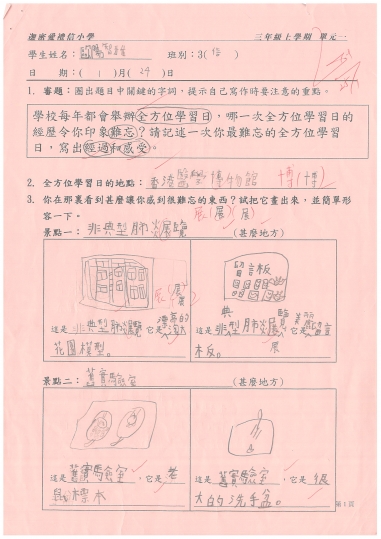 迦密愛禮信小學 三年級上學期 單元一
學生姓名： 班別：3(信)
日 期：( )月( 29 )日
1. 審題：圈出題目中關鍵的字詞，提示自己寫作時要注意的重點。
學校每年都會舉辦全方位學習日，哪一次全方位學習日的
經歷令你印象難忘？請記述一次你最難忘的全方位學習
日，寫出經過和感受。
2. 全方位學習日的地點：香港醫學博物館 博(博)
3. 你在那裏看到甚麼讓你感到很難忘的東西？試把它畫出來，並簡單形
容一下。 展(展)(展)
景點一：非典型肺炎展覽 (甚麼地方)
留言板
這是非典型肺炎展覽，它是淘大
花園模型。
這是非典型肺炎展覽，它是留言
木板。
展
景點二：舊實驗室 (甚麼地方)
這是舊實驗室，它是老
鼠標本
這是舊實驗室，它是
大的洗手盆。
第1頁